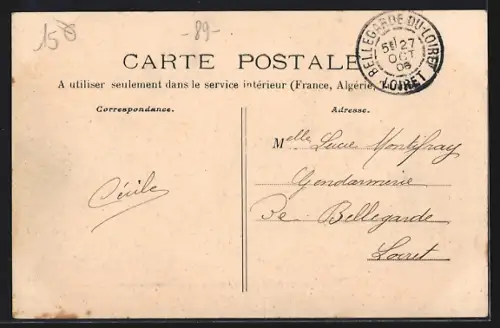 15
-89-
CARTE POSTALE
A utiliser seulement dans le service intérieur (France, Algérie,
BELLEGARDE-DU-LOIRET
5E 27
OCT
06
LOIRET
Correspondance.
Adresse.
Melle Lucie Montifray
Gendarmerie
De Bellegarde
Loiret
Cécile